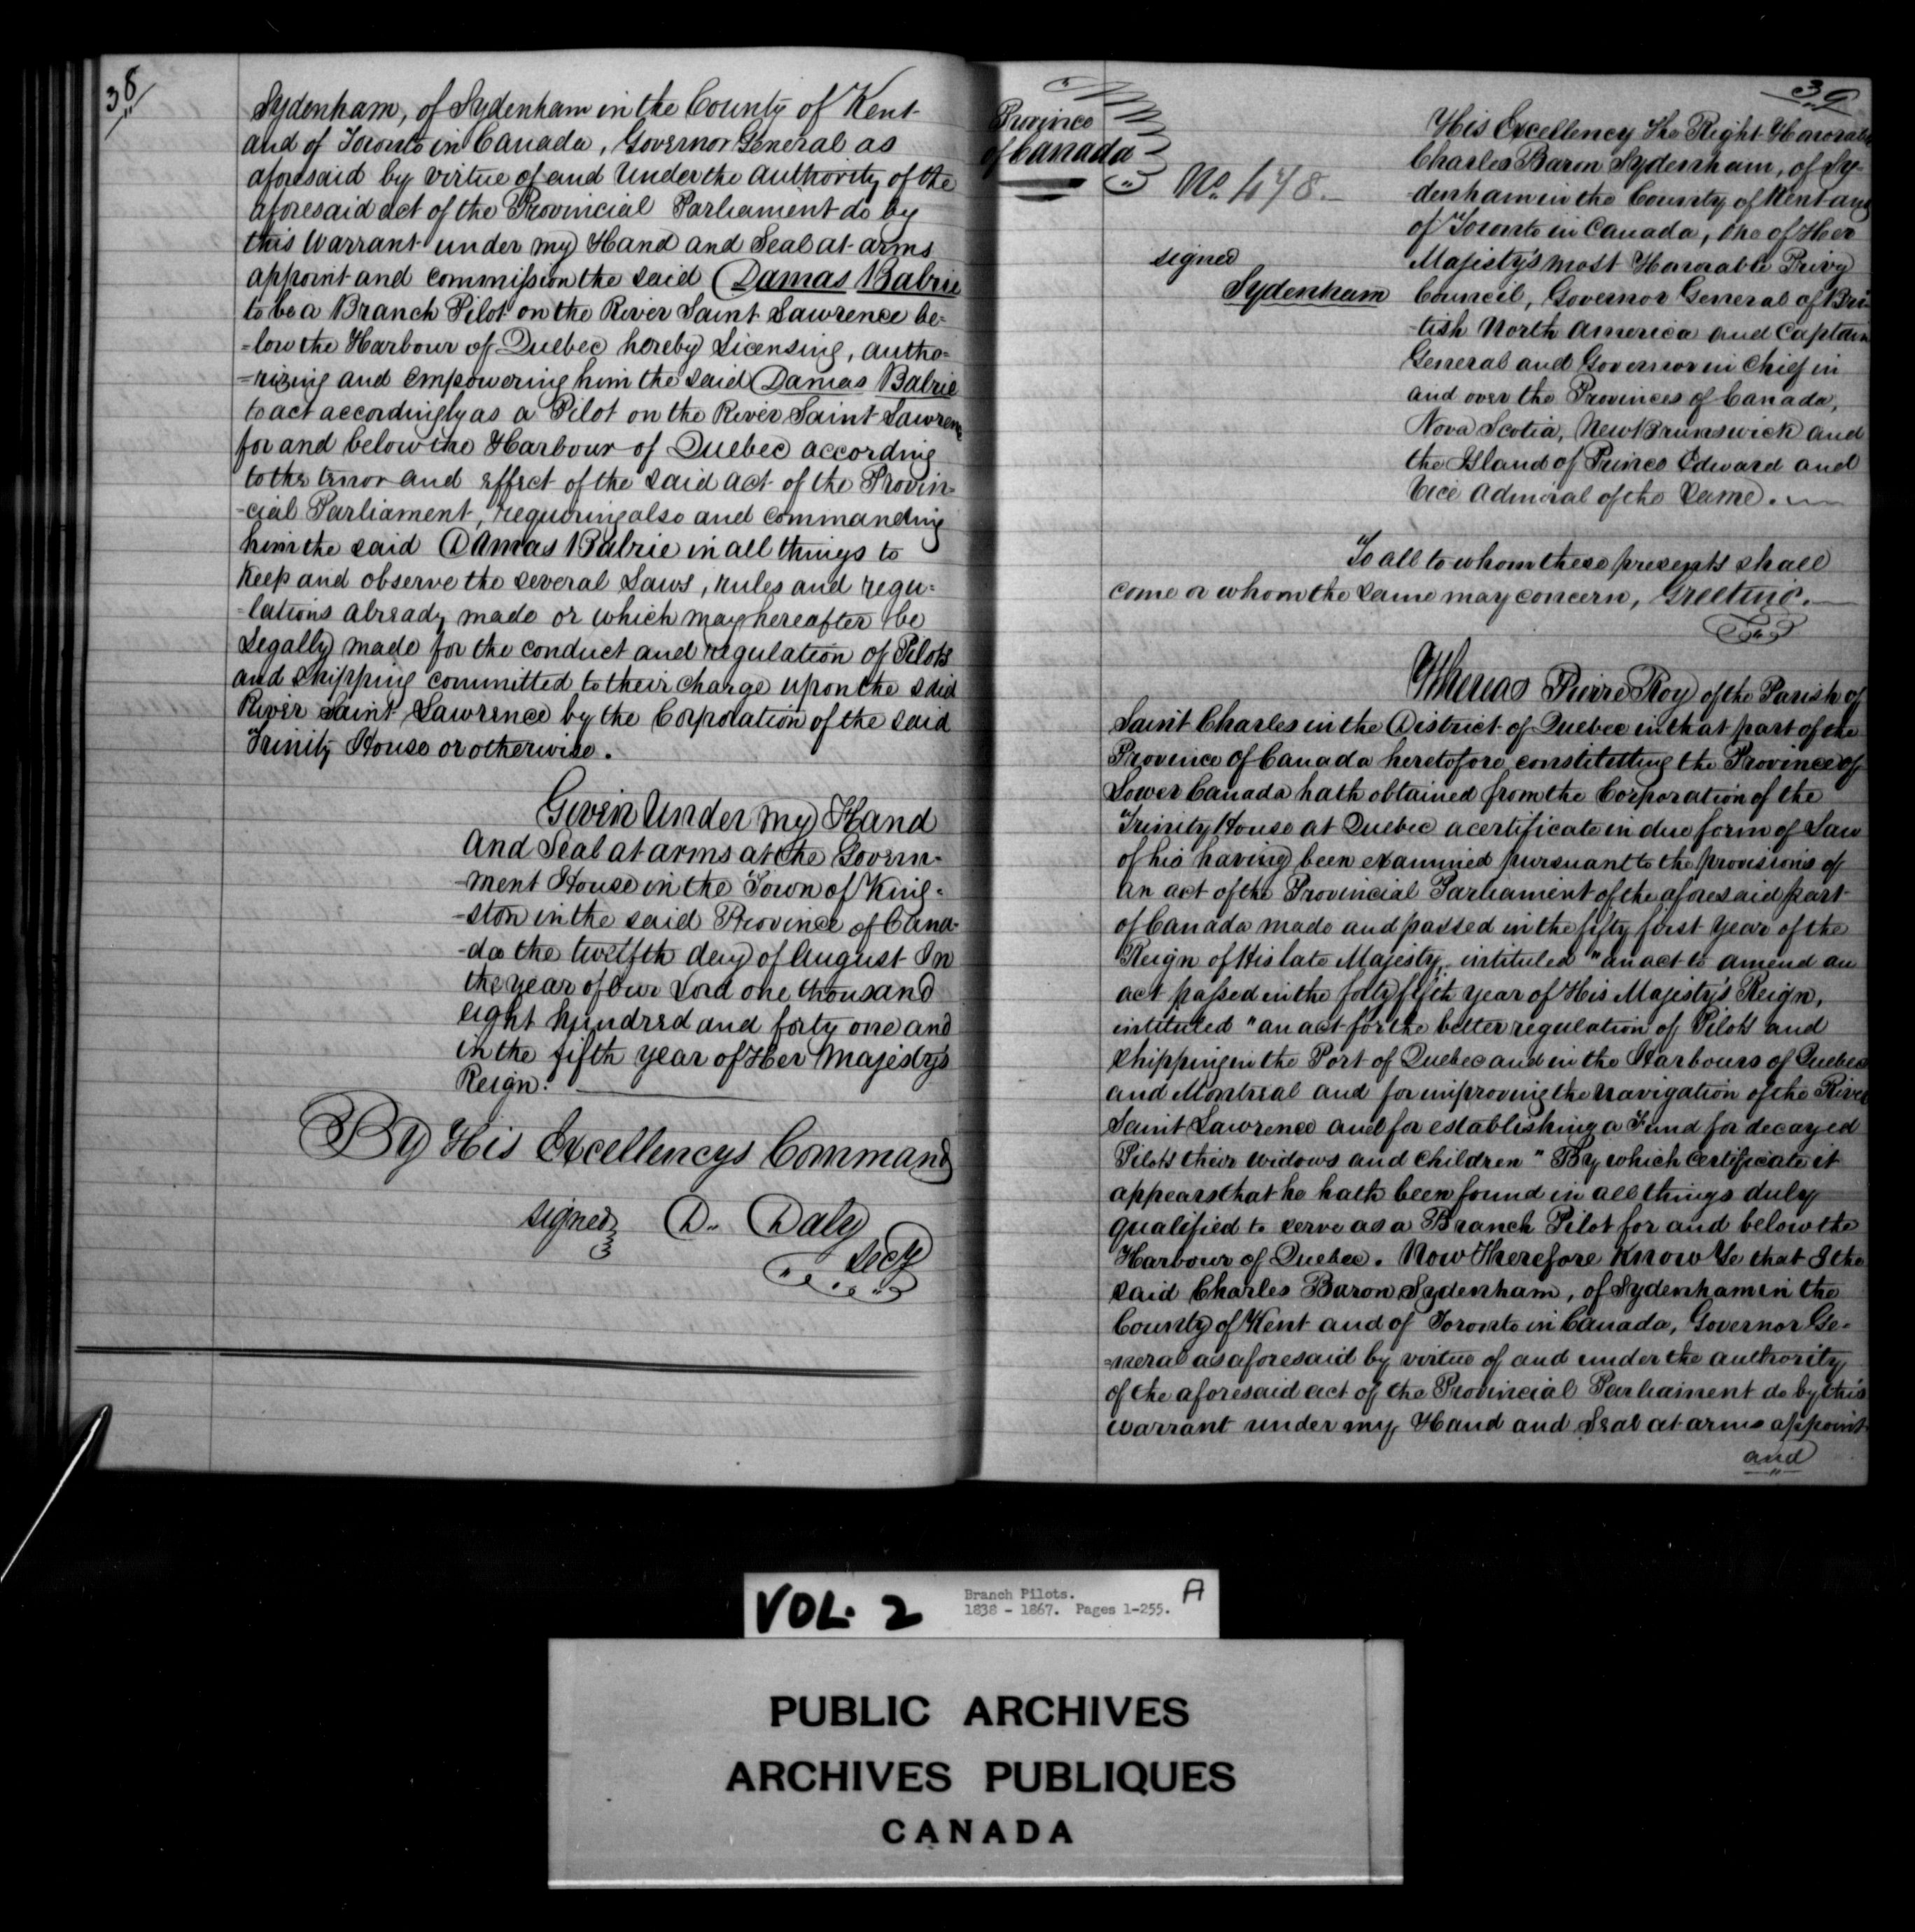 38
Sydenham, of Sydenham in the County of Kent
and of Toronto in Canada, Governor General as
aforesaid by virtue of and Under the Authority of the
aforesaid act of the Provincial Parliament do by
this Warrant under my Hand and Seal at arms
appoint and commission the said Damas Babrie
to be a Branch Pilot on the River Saint Lawrence be=
=low the Harbour of Quebec hereby Licensing, autho=
=rizing and empowering him the said Damas Babrie
to act accordingly as a Pilot on the River Saint Lawrence
for and below the Harbour of Quebec according
to the tenor and effect of the said act of the Provin-
-cial Parliament, requiring also and commanding
him the said Damas Babrie in all things to
keep and observe the several Laws, rules and regu=
=lations already made or which may hereafter be
Legally made for the conduct and regulation of Pilots
and shipping committed to their charge upon the said
River Saint Lawrence by the Corporation of the said
Trinity House or otherwise.
Given Under my Hand
And Seal at arms at the Govern-
-ment House in the Town of King=
-ston in the said Province of Cana-
-da the twelfth day of August In
the year of Our Lord one thousand
eight hundred and forty one and
in the fifth year of Her Majesty's
Reign.
By His Excellencys Command
signed D. Daly
Secy
39
Province
of Canada
No. 478.
signed
Sydenham
His Excellency The Right Honorable
Charles Baron Sydenham, of Sy-
-denham in the County of Kent and
of Toronto in Canada, One of Her
Majesty's most Honorable Privy
Council, Governor General of Bri-
-tish North America and Captain
General and Governor in Chief in
and over the Provinces of Canada,
Nova Scotia, New Brunswick and
the Island of Prince Edward and
Vice Admiral of the Same.
To all to whom these presents shall
come or whom the same may concern, Greeting.
Whereas Pierre Roy of the Parish of
Saint Charles in the District of Quebec in that part of the
Province of Canada heretofore constituting the Province of
Lower Canada hath obtained from the Corporation of the
Trinity House at Quebec a certificate in due form of Law
of his having been examined pursuant to the provisions of
an act of the Provincial Parliament of the aforesaid part
of Canada made and passed in the fifty first Year of the
Reign of His late Majesty, intituled "an act to amend an
act passed in the forty fifth year of His Majesty's Reign,
intituled "an act for the better regulation of Pilots and
shipping in the Port of Quebec and in the Harbours of Quebec
and Montreal and for improving the navigation of the River
Saint Lawrence and for establishing a Fund for decayed
Pilots their widows and children" By which certificate it
appears that he hath been found in all things duly
qualified to serve as a Branch Pilot for and below the
Harbour of Quebec. Now Therefore Know Ye that I the
said Charles Baron Sydenham, of Sydenham in the
County of Kent and of Toronto in Canada, Governor Ge-
=neral as aforesaid by virtue of and under the authority
of the aforesaid act of the Provincial Parliament do by this
warrant under my Hand and Seal at arms appoint
and
VOL. 2
Branch Pilots.
1838 - 1867. Pages 1-255.
A
PUBLIC ARCHIVES
ARCHIVES PUBLIQUES
CANADA